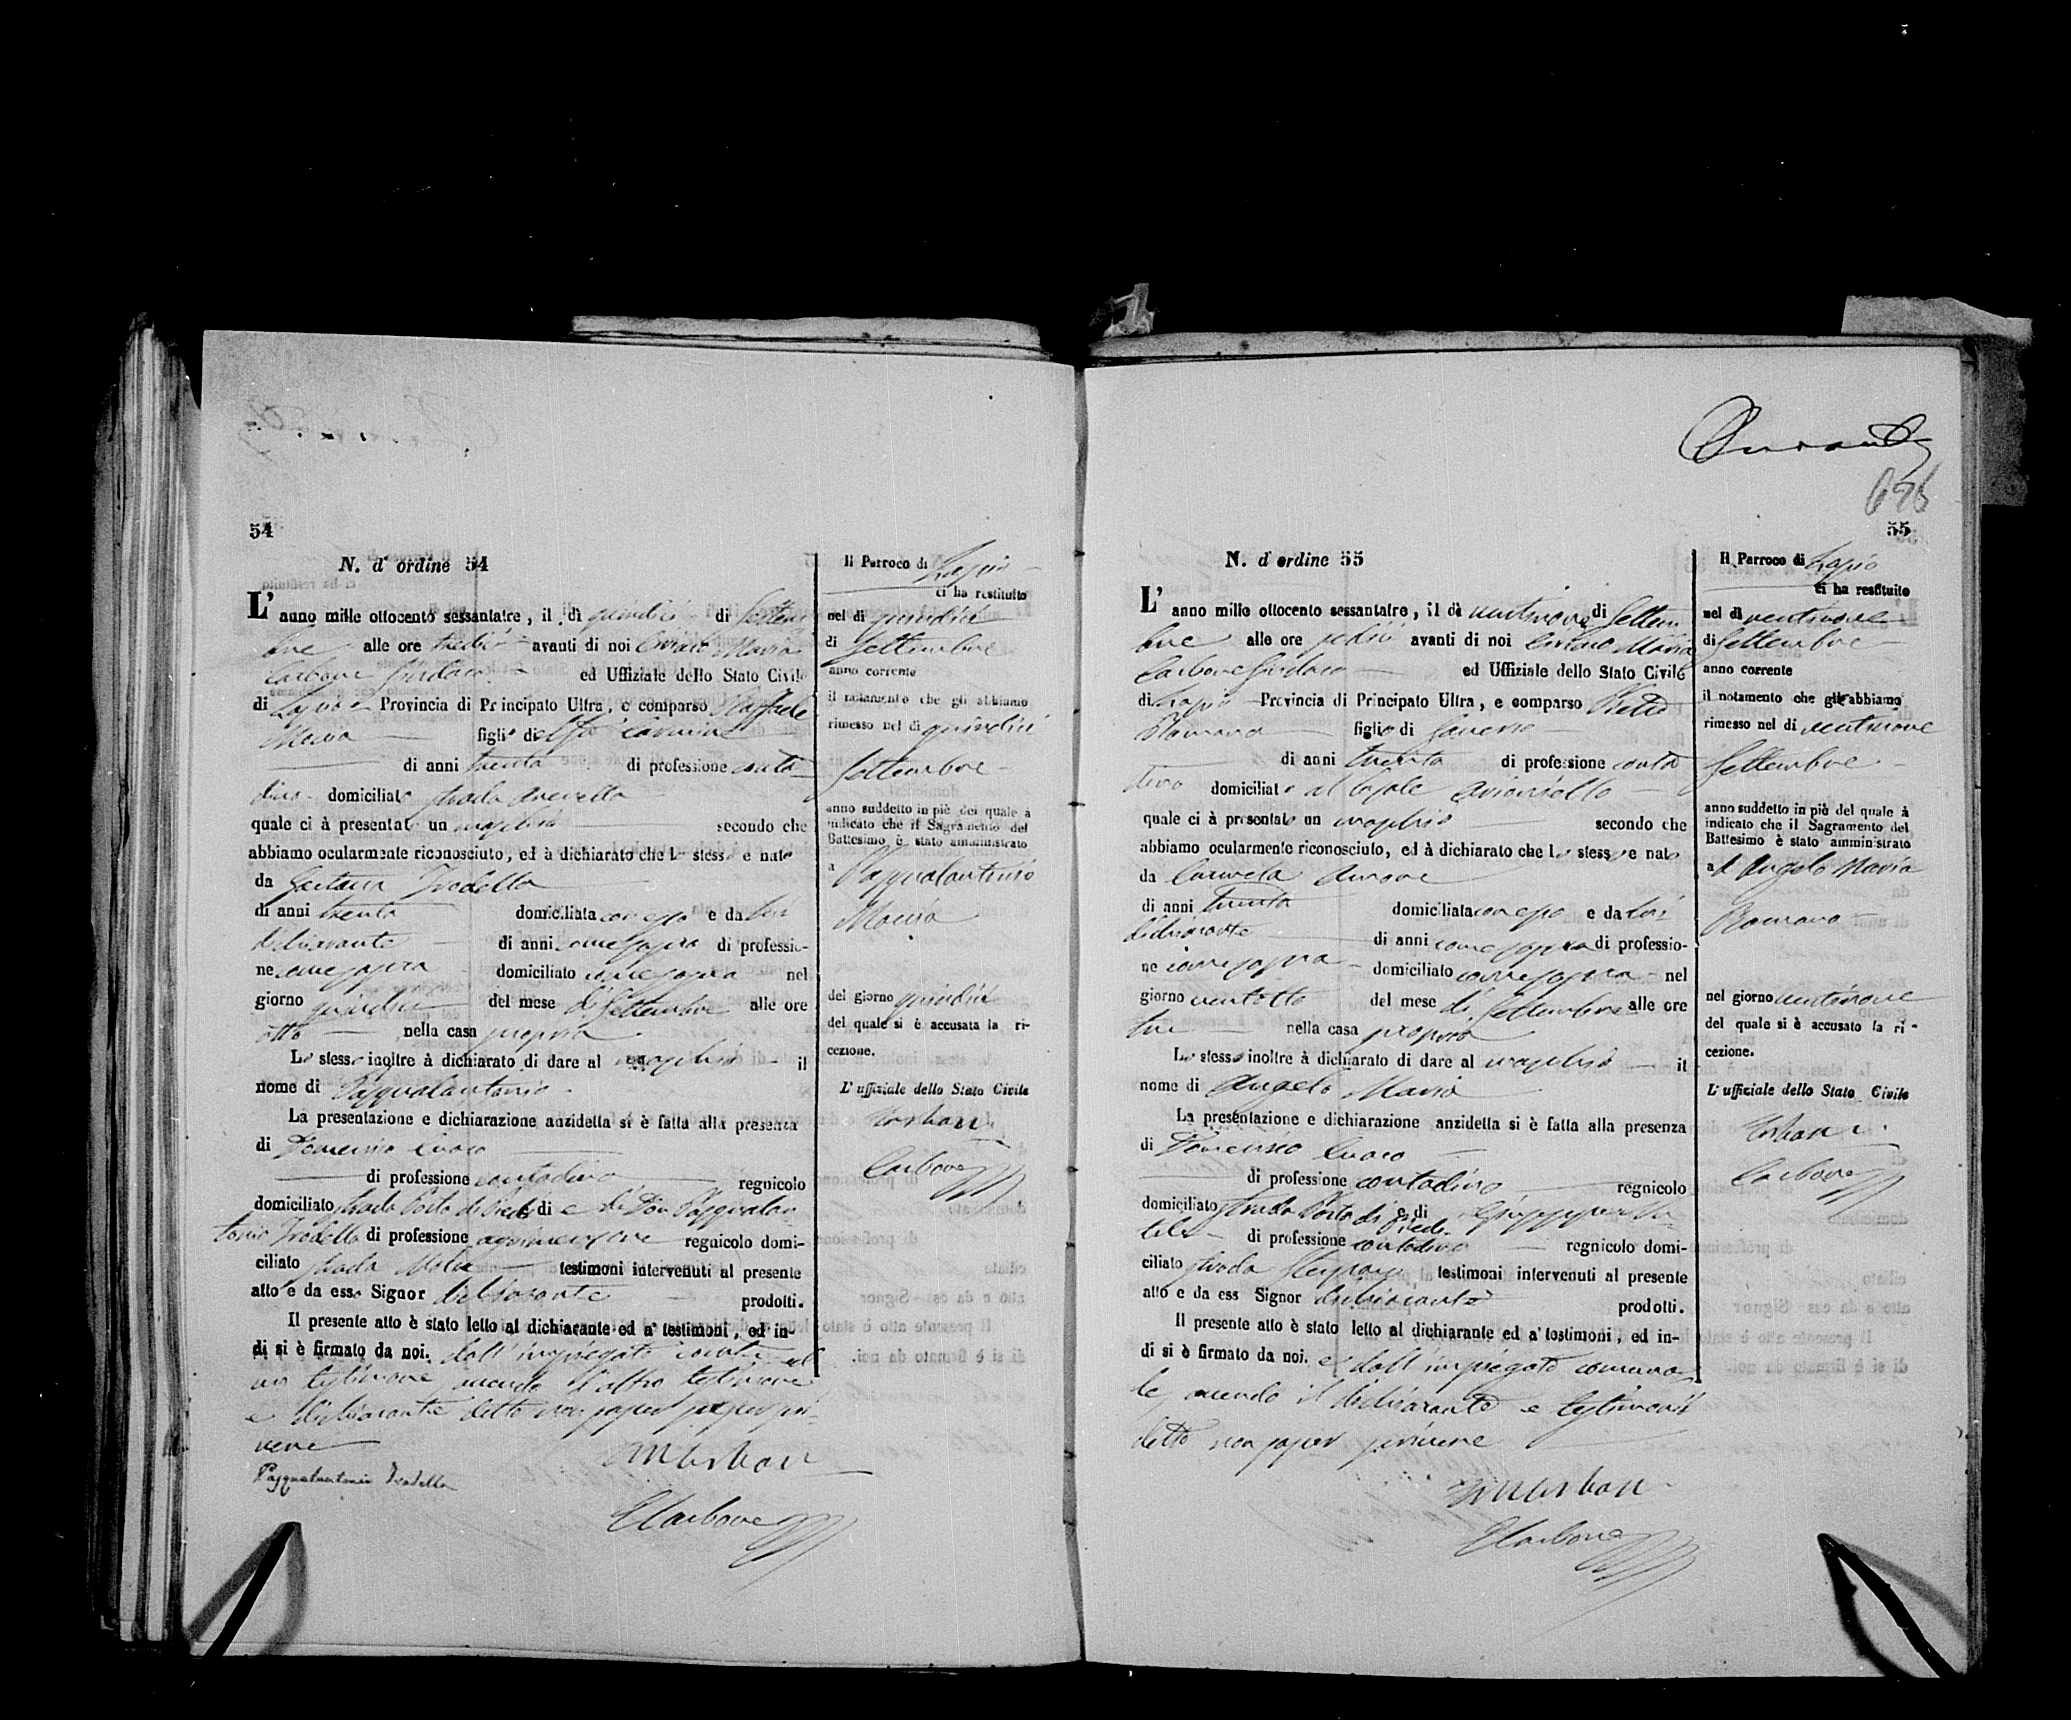 54
N. d' ordine 54
L' anno mille ottocento sessantatre, il dì quindici di Settem
bre alle ore tredici avanti di noi Maria
Carbone Sindaco ed Uffiziale dello Stato Civile
di Lapio Provincia di Principato Ultra, è comparso Raffaele
figlio di
di anni trenta di professione conta
dino domiciliato strada
quale ci à presentato un maschio secondo che
abbiamo ocularmente riconosciuto, ed à dichiarato che lo stesso e nato
da Gaetana Trodella
di anni trenta domiciliata con esso e da lui
dichiarante di anni come sopra di professio-
ne come sopra domiciliato come sopra nel
giorno quindici del mese di Settembre alle ore
otto nella casa propria
Lo stesso inoltre à dichiarato di dare al maschio il
nome di Pasqualantonio
La presentazione e dichiarazione anzidetta si è fatta alla presenza
di Domenico Cuoco
di professione contadino regnicolo
domiciliato strada Porta di Piedi e di Don Pasqualan
tonio Trodella di professione regnicolo domi-
ciliato strada testimoni intervenuti al presente
atto e da esso Signor dichiarante prodotti.
Il presente atto è stato letto al dichiarante ed a' testimoni, ed in-
di si è firmato da noi. dall' impiegato
un testimone avendo l'altro testimone
e dichiarante detto non saper scri
vere
Pasqualantonio Trodella
Carbone
Il Parroco di Lapio
ci ha restituito
nel dì quindici
di Settembre
anno corrente
il notamento che gli abbiamo
rimesso nel dì quindici
Settembre
anno suddetto in piè del quale à
indicato che il Sagramento del
Battesimo è stato amministrato
a Pasqualantonio
del giorno quindici
del quale si è accusata la ri-
cezione.
L' uffiziale dello Stato Civile
Carbone
655
55
N. d' ordine 55
L' anno mille ottocento sessantatre, il dì ventinove di Settem
bre alle ore sedici avanti di noi Maria
Carbone Sindaco ed Uffiziale dello Stato Civile
di Lapio Provincia di Principato Ultra, e comparso
Romano figlio di Saverio
di anni trenta di professione conta
dino domiciliato al Casale Arianiello
quale ci à presentato un maschio secondo che
abbiamo ocularmente riconosciuto, ed à dichiarato che lo stesso e nato
da Carmela
di anni trenta domiciliata con esso e da lui
dichiarante di anni come sopra di professio-
ne come sopra domiciliato come sopra nel
giorno ventotto del mese di Settembre alle ore
tre nella casa propria
Lo stesso inoltre à dichiarato di dare al maschio il
nome di Angelo Maria
La presentazione e dichiarazione anzidetta si è fatta alla presenza
di Domenico Cuoco
di professione contadino regnicolo
domiciliato strada Porta di Piedi e di Giuseppe
di professione contadino regnicolo domi-
ciliato strada testimoni intervenuti al presente
atto e da ess Signor dichiarante prodotti.
Il presente atto è stato letto al dichiarante ed a' testimoni, ed in-
di si è firmato da noi. e dall' impiegato comuna
le avendo il dichiarante e testimoni
detto non saper scrivere
Carbone
Il Parroco di Lapio
ci ha restituito
nel dì ventinove
di Settembre
anno corrente
il notamento che gli abbiamo
rimesso nel dì ventinove
Settembre
anno suddetto in piè del quale à
indicato che il Sagramento del
Battesimo è stato amministrato
ad Angelo Maria
Romano
nel giorno ventinove
del quale si è accusato la ri-
cezione.
L' uffiziale dello Stato Civile
Carbone